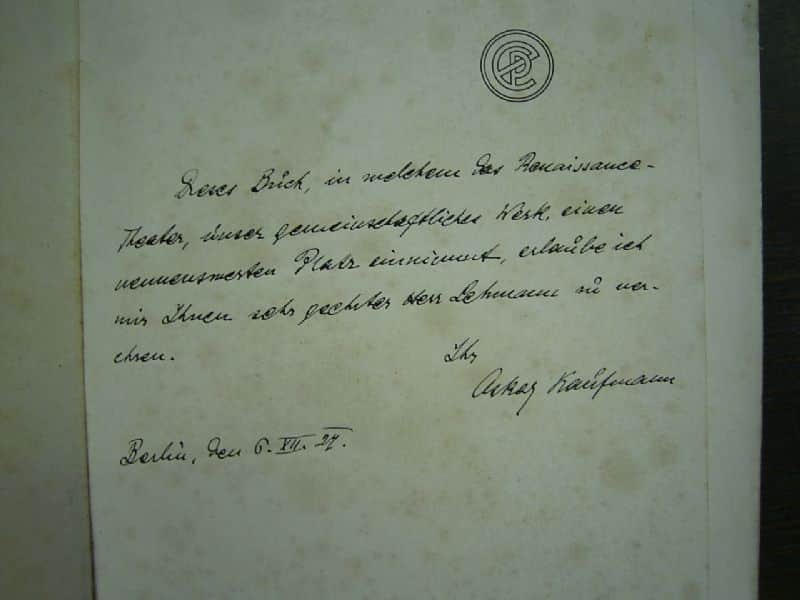 Dieses Buch, in welchem das Renaissance-
Theater, unser gemeinschaftliches Werk, einen
nennenswerten Platz einnimmt, erlaube ich
mir Ihnen sehr geehrter Herr Lehmann zu ver-
ehren.
Ihr
Oskar Kaufmann
Berlin, den 6. XII. 27.